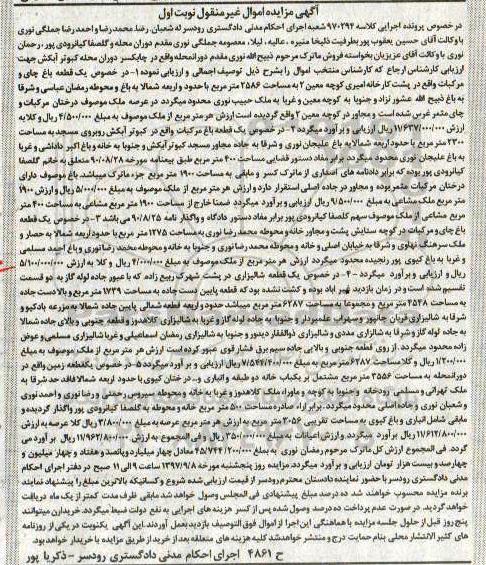 آگهی مزایده اموال غیر منقول نوبت اول
در خصوص پرونده اجرایی کلاسه ۹۷۰۲۹۴ شعبه اجرای احکام مدنی دادگستری رودسر له شعبان، رضا، محمدرضا و احمدرضا جملگی نوری
با وکالت آقای حسین یعقوب پور بطرفیت ذلیخا منیره، عالیه، لیلا، معصومه جملگی نوری مقدم دوران محله و گلصفا کیانرودی پور، رحمان
نوری با وکالت آقای عزیزیان بخواسته فروش ماترک مرحوم ذبیح الله نوری مقدم دورانمحله واقع در چابکسر دوران محله کبوتر آبکش جهت
ارزیابی کارشناس ارجاع که کارشناس منتخب اموال را بشرح ذیل توصیف اجمالی و ارزیابی نموده ۱- در خصوص یک قطعه باغ چای و
مرکبات واقع در پشت کارخانه امیری کوچه معین ۲ به مساحت ۲۵۸۶ متر مربع با حدود واربعه شمالا به باغ و محوطه رمضان عباسی و شرقا
به باغ ذبیح الله عشور نژاد و جنوبا به کوچه معین و غربا به ملک حبیب نوری محدود میگردد در عرصه ملک موصوف درختان مرکبات و
چای مثمر غرس شده است و مجاور در کوچه معین ۲ واقع گردیده است ارزش هر متر مربع از ملک موصوف به مبلغ ۴/۵۰۰/۰۰۰ ریال و کلا به
ارزش ۱۱/۶۳۷/۰۰۰/۰۰۰ ریال ارزیابی و برآورد میگردد ۲- در خصوص یک قطعه باغ مرکبات واقع در کبوتر آبکش روبروی مسجد به مساحت
۲۳۰۰ متر مربع با حدود اربعه شمالا به باغ علیجان نوری و شرقا به جاده مجاور مسجد کبوتر آبکش و جنوبا به خانه و باغ اکبر داداشی و غربا
به باغ علیجان نوری محدود میگردد برابر مفاد دستور قضایی مساحت ۴۰۰ متر مربع طبق بیعنامه مورخه ۹۰/۰۸/۲۸ متعلق به خانم گلصفا
کیانرودی پور بوده که برابر دادنامه های اصداری از ماترک کسر و مابقی به مساحت ۱۹۰۰ متر مربع جزء ماترک میباشد. باغ موصوف دارای
درختان مرکبات مثمر بوده و مجاور در جاده اصلی استقرار دارد و ارزش هر متر مربع از ملک موصوف به مبلغ ۵/۰۰۰/۰۰۰ ریال و ارزش ۱۹۰۰
متر مربع ملک مشاعی به مبلغ ۹/۵۰۰/۰۰۰ ریال ارزیابی و برآورد میگردد ضمنا خارج از مساحت ۱۹۰۰ متر مربع مشاعی به مساحت ۴۰۰ متر
مربع مشاعی از ملک موصوف سهم گلصفا کیانرودی پور برابر مفاد دستور دادگاه و واگذار نامه ۹۰/۸/۲۵ می باشد ۳- در خصوص یک قطعه
باغ چای و مرکبات در کوچه ستایش پشت و مجاور خانه و محوطه محمدرضا نوری به مساحت ۱۲۷۵ متر مربع با حدود اربعه شمالا به حصار و
ملک سرهنگ نهلوی و شرقا به خیابان اصلی و خانه و محوطه محمدرضا نوری و جنوبا به خانه و محوطه محمدرضا نوری و باغ احمد مسلمی
و غربا به باغ کیوی پور رنجبده محدود میگردد ارزش هر متر مربع از ملک موصوف به مبلغ ۴/۰۰۰/۰۰۰ ریال و کلا به ارزش ۵/۱۰۰/۰۰۰/۰۰۰
ریال و ارزیابی و برآورد میگردد. ۴- در خصوص یک قطعه شالیزاری در پشت شهرک ربیع زاده که با عبور جاده لوله گاز به دو قسمت
تقسیم شده است و در زمان بازدید بهر اباد بوده و کشت نشده بود که قطعه پایین دست جاده به مساحت ۱۷۳۹ متر مربع و بالا دست جاده
به مساحت ۴۵۴۸ متر مربع و مجموعا به مساحت ۶۲۸۷ متر مربع میباشد حدود اربعه قطعه شمالی پایین جاده شمالا به مزرعه بادکیو و
شرقا به شالیزاری قربان جانپور و سهراب علمبردار و جنوبا به جاده لوله گاز و غربا به شالیزاری کلاهدوز و قطعه جنوبی و بالای جاده شمالا
به جاده لوله گاز و شرقا به شالزاری مددی و شالیزاری ذوالفقار دیدنور و جنوبا به شالیزاری رمضان اسماعیلی و غربا شالیزاری مسلمی و عوض
زاده محدود میگردد. از روی قطعه جنوبی و بالایی جاده سیم برق فشار قوی عبور کرده است ارزش هر متر مربع از ملک موصوف به مبلغ
۱/۲۰۰/۰۰۰ ریال و کلا مساحت ۶۲۸۷ متر مربع به مبلغ ۷/۵۴۴/۴۰۰/۰۰۰ ریال ارزیابی و برآورد میگردد ۵- در خصوص یکقطعه زمین واقع در
دورانمحله به مساحت ۳۵۵۶ متر مربع مشتمل بر یکباب خانه دو طبقه و انباری و... درختان کیوی با حدود اربعه شمالا فاقد حد شرقا به
ملک تهرانی و مسلمی و درختانه و جنوبا به کوچه و ماوراء ملک کلاهدوز و غربا به خانه و محوطه سیروس رحمتی و رضا نوری و احمد نوری
و شعبان نوری و جاده اصلی محدود میگردد. برابر اراء صادره مساحت ۵۰۰ متر مربع خانه و محوطه به گلصفا کیانرودی پور واگذار گردیده و
مابقی شامل انباری و باغ کیوی به مساحت تقریبی ۳۰۵۶ متر مربع به ارزش هر متر مربع عرصه به مبلغ ۳/۸۰۰/۰۰۰ ریال کلا عرصه به ارزش
۱۱/۶۱۲/۸۰۰/۰۰۰ ریال برآورد میگردد و ارزش اعیانات به مبلغ ۳۵۰/۰۰۰/۰۰۰ ریال و فی المجموع به ارزش ۱۱/۹۶۲/۸۰۰/۰۰۰ ریال برآورد می
گردد. فی المجموع ارزش کل ماترک مرحوم رمضان نوری به مبلغ ۴۵/۷۴۴/۲۰۰/۰۰۰ معادل چهار میلیارد و پانصد و هفتاد و چهار میلیون و
چهارصد و بیست هزار تومان ارزیابی و برآورد میگردد. مزایده روز پنجشنبه مورخه ۱۳۹۷/۹/۸ ساعت ۹ الی ۱۱ صبح در دفتر اجرای احکام
مدنی دادگستری رودسر با حضور نماینده دادستان محترم رودسر از قیمت ارزیابی شده شروع و کسانیکه بالاترین مبلغ را پیشنهاد نمایند
برنده مزایده محسوب خواهند شد ده درصد مبلغ پیشنهادی فی المجلس وصول خواهد شد مابقی ظرف مدت کمتر از یک ماه دریافت
خواهد گردید. در صورت عدم پرداخت ده درصد وصول شده پس از کسر هزینه های اجرایی به نفع دولت ضبط میگردد. خریداران میتوانند
پنج روز قبل از حلول جلسه مزایده با هماهنگی این اجرا از اموال فوق التوصیف بازدید بعمل آورند. این آگهی یکنوبت در یکی از روزنامه
های کثیر الانتشار محلی بنام حمایت درج و منتشر خواهد شد کلیه هزینه های متعلقه بعد از خرید از طریق مزایده با خریدار خواهد بود.
ح ۴۸۶۱ اجرای احکام مدنی دادگستری رودسر - ذکریا پور